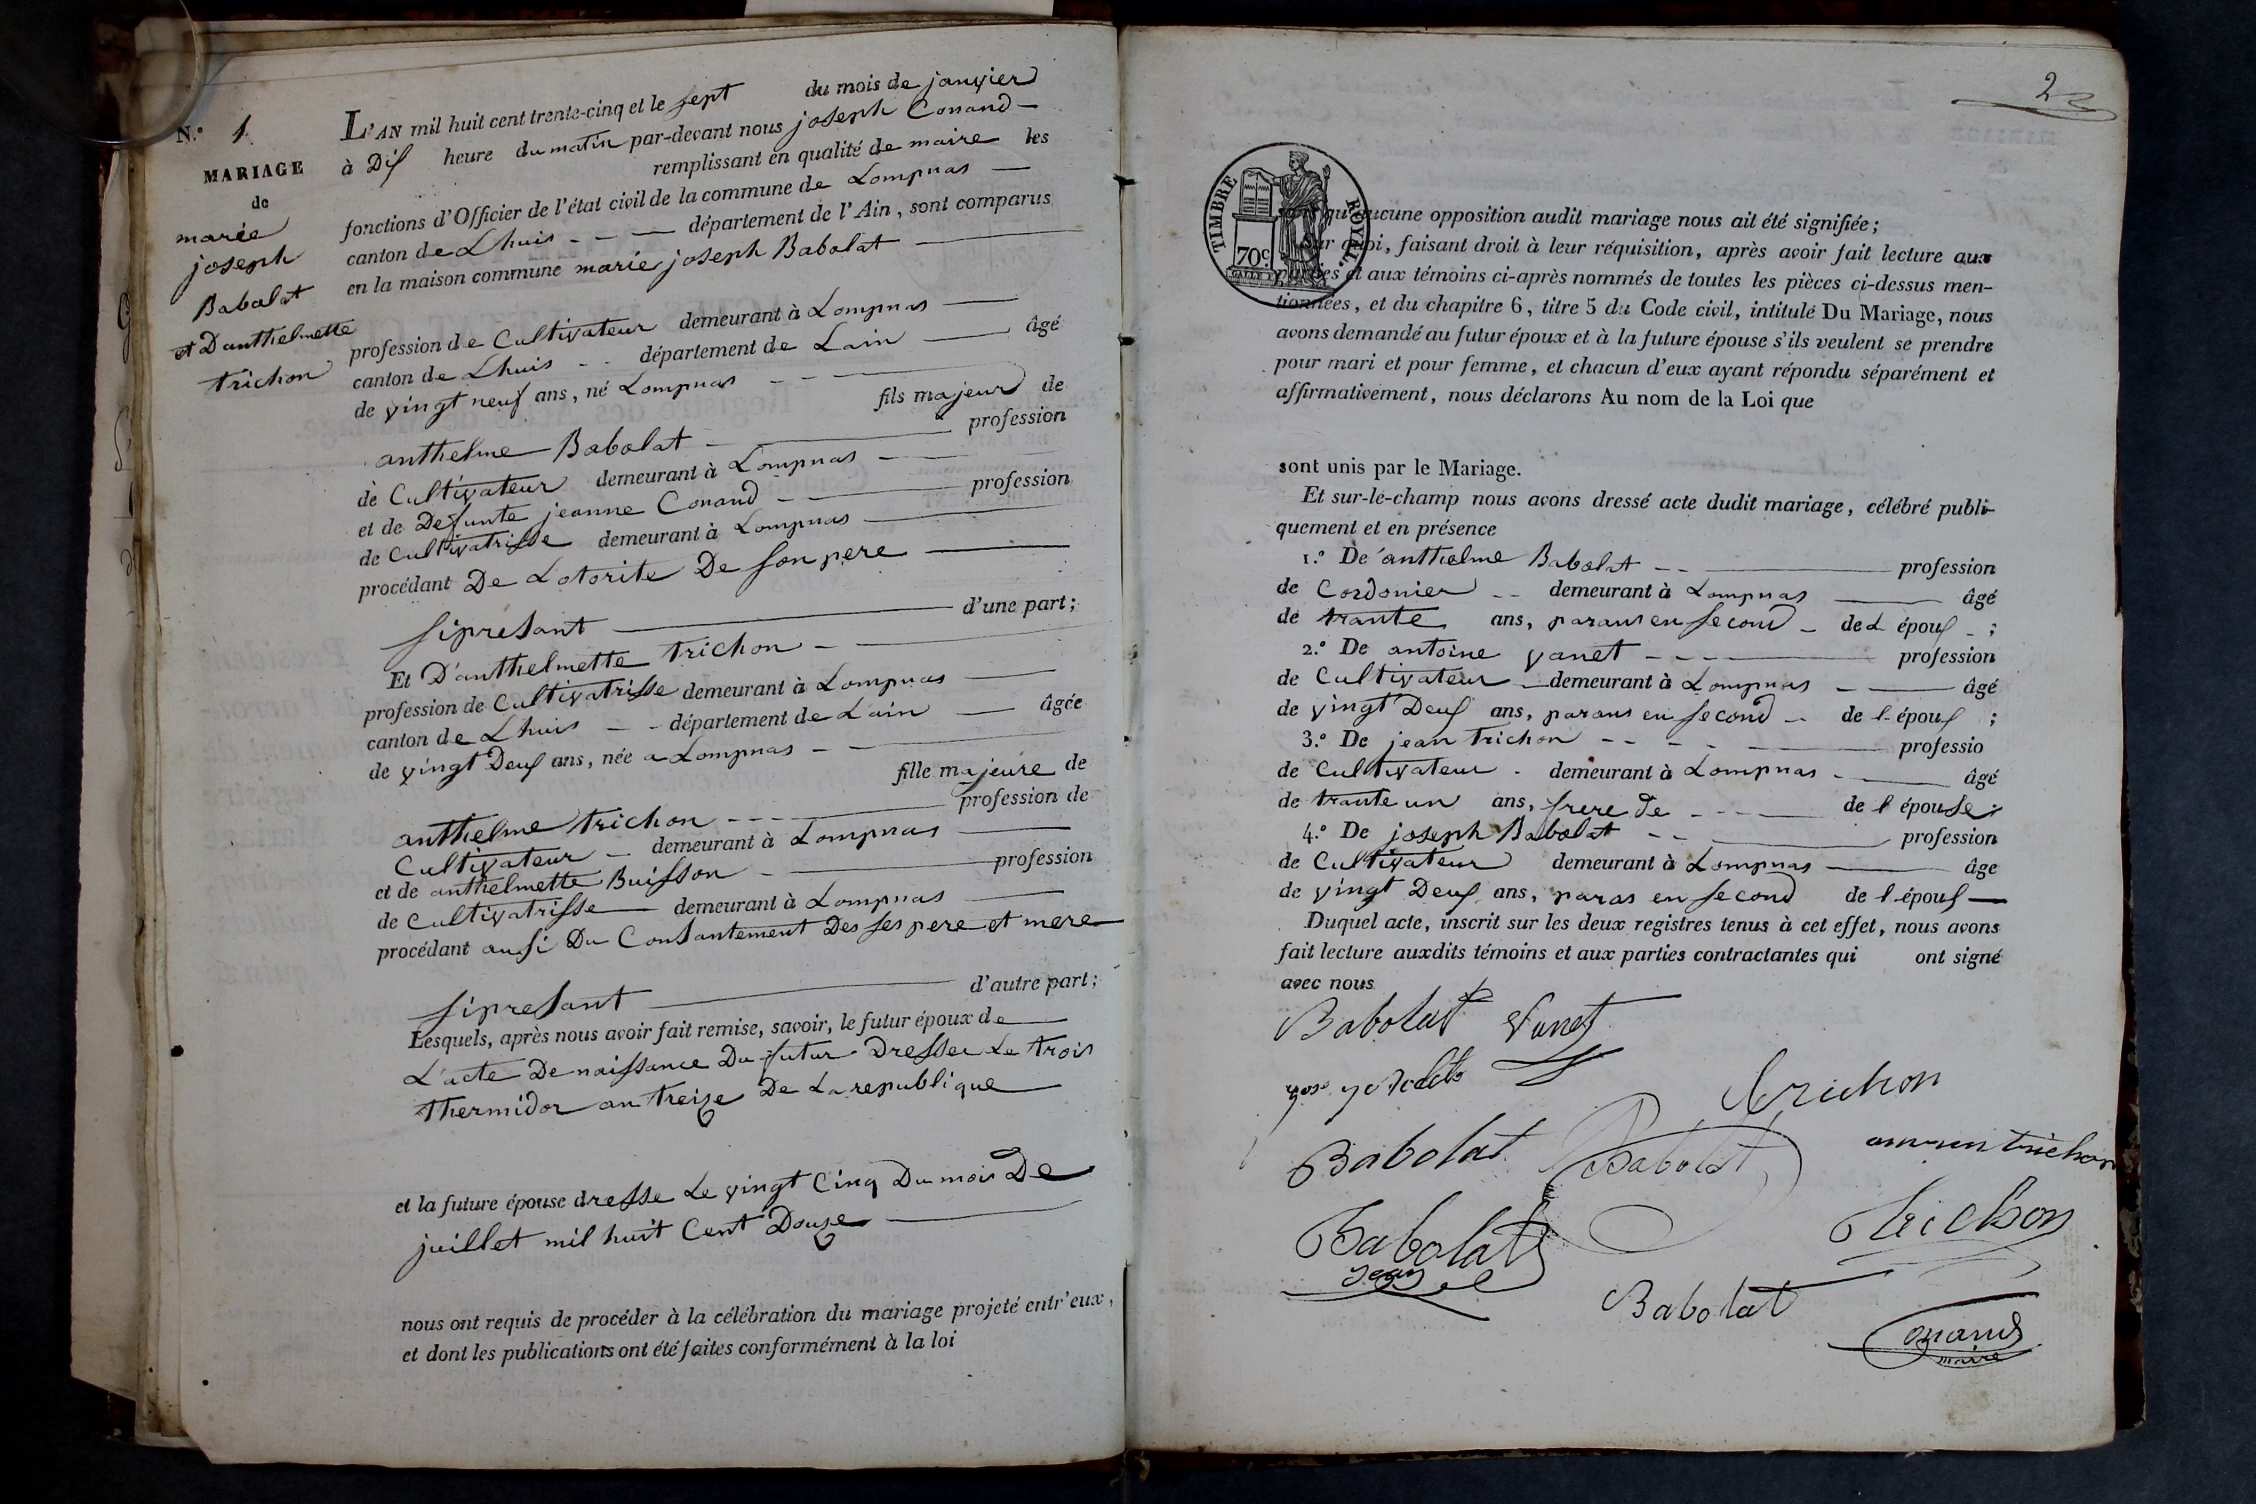 N.° 1
MARIAGE
de
marie
joseph
Babolat
et Danthelmette
trichon
L'AN mil huit cent trente-cinq et le sept du mois de janvier
à Dix heure du matin par-devant nous joseph Conand
remplissant en qualité de maire les
fonctions d'Officier de l'état civil de la commune de Lompnas
canton de Lhuis département de l'Ain, sont comparus
en la maison commune marie joseph Babolat
profession de Cultivateur demeurant à Lompnas
canton de Lhuis département de Lain âgé
de vingt neuf ans, né Lompnas
fils majeur de
anthelme Babolat profession
de Cultivateur demeurant à Lompnas
et de Defunte jeanne Conand profession
de Cultivatrisse demeurant à Lompnas
procédant De Lotorite De son pere
sipresant d'une part;
Et D'anthelmette trichon
profession de Cultivatrisse demeurant à Lompnas
canton de Lhuis département de Lain âgée
de vingt Deux ans, née a Lompnas
fille majeure de
anthelme trichon profession de
Cultivateur demeurant à Lompnas
et de anthelmette Buisson profession
de Cultivatrisse demeurant à Lompnas
procédant ausi Du Consantement Des ses pere et mere
sipresant d'autre part;
Lesquels, après nous avoir fait remise, savoir, le futur époux de
L'acte De naissance Du futur Dresser Le trois
thermidor an treize De La republique
et la future épouse dresse Le vingt Cinq Du mois De
juillet mil huit Cent Douze
nous ont requis de procéder à la célébration du mariage projeté entr'eux,
et dont les publications ont été faites conformément à la loi
2
TIMBRE ROYAL
70c.
aucune opposition audit mariage nous ait été signifiée;
Sur quoi, faisant droit à leur réquisition, après avoir fait lecture aux
parties et aux témoins ci-après nommés de toutes les pièces ci-dessus men-
tionnées, et du chapitre 6, titre 5 du Code civil, intitulé Du Mariage, nous
avons demandé au futur époux et à la future épouse s'ils veulent se prendre
pour mari et pour femme, et chacun d'eux ayant répondu séparément et
affirmativement, nous déclarons Au nom de la Loi que
sont unis par le Mariage.
Et sur-le-champ nous avons dressé acte dudit mariage, célébré publi-
quement et en présence
1.° De anthelme Babolat profession
de Cordonier demeurant à Lompnas âgé
de trante ans, parans en second de L époux;
2.° De antoine vanet profession
de Cultivateur demeurant à Lompnas âgé
de vingt Deux ans, parans en second de l époux;
3.° De jean trichon professio
de Cultivateur demeurant à Lompnas âgé
de trante un ans, frere de de l épouse;
4.° De joseph Babolat profession
de Cultivateur demeurant à Lompnas âge
de vingt Deux ans, paras en second de l époux
Duquel acte, inscrit sur les deux registres tenus à cet effet, nous avons
fait lecture auxdits témoins et aux parties contractantes qui ont signé
avec nous
Babolat Vanet
trichon
Babolat Babolat trichon
Babolat trichon
jean
Babolat
Conand
maire